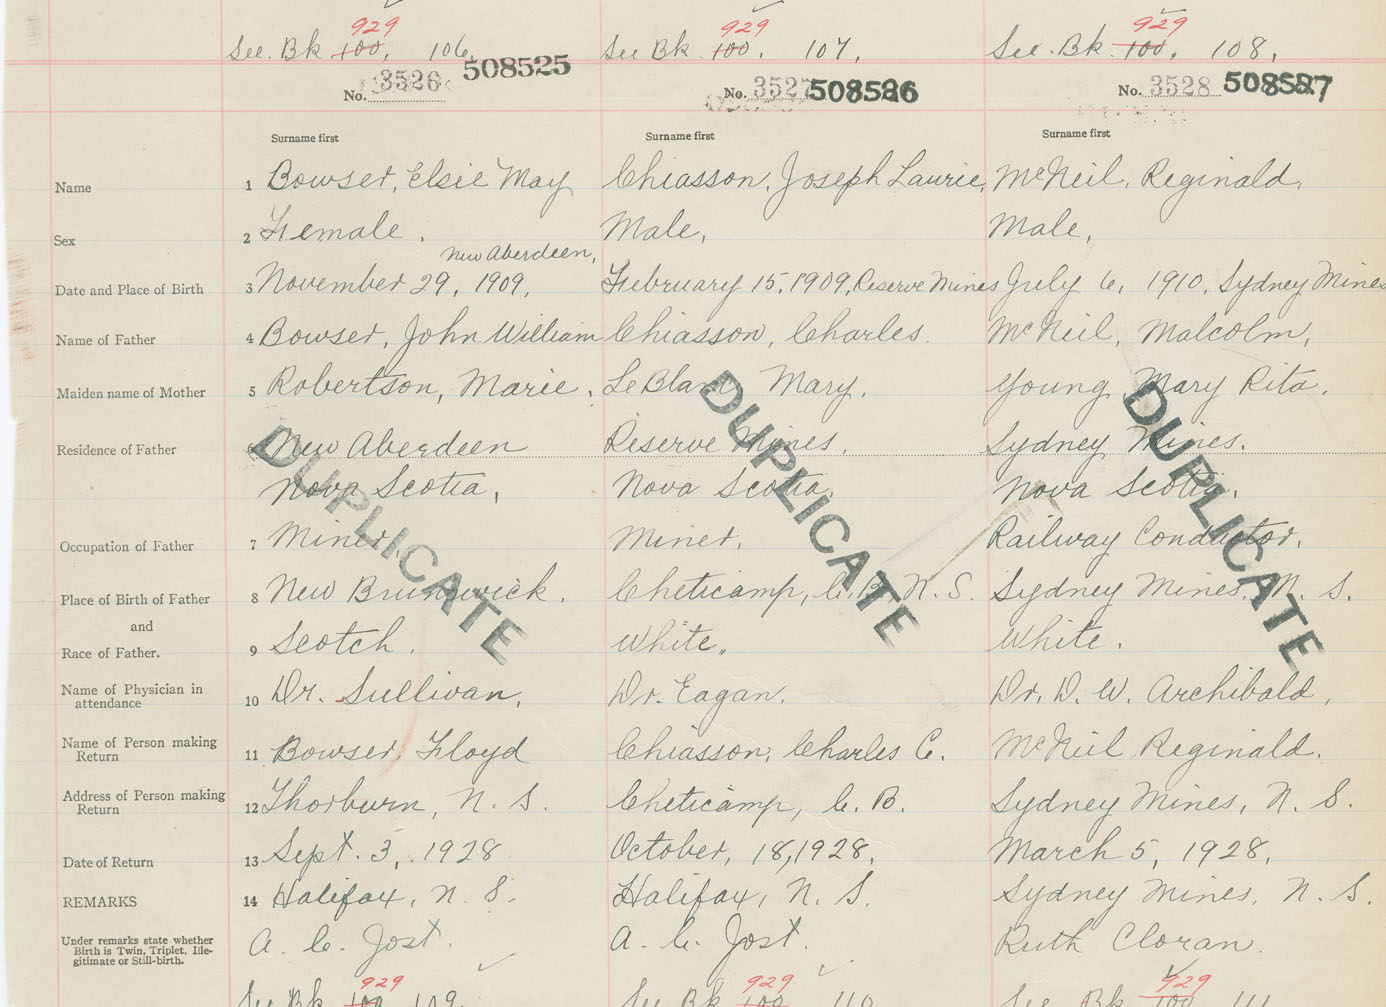 929 929 929
See. Bk 100, 106, See Bk. 100. 107, See. Bk. 100, 108,
No. 3526 508525 No. 3527 508526 No. 3528 508527
Surname first Surname first Surname first
Name 1 Bowser, Elsie May Chiasson, Joseph Laurie, McNeil, Reginald,
Sex 2 Female. Male, Male,
New Aberdeen,
Date and Place of Birth 3 November 29, 1909, February 15, 1909, Reserve Mines July 6, 1910, Sydney Mines
Name of Father 4 Bowser, John William Chiasson, Charles. McNeil, Malcolm,
Maiden name of Mother 5 Robertson, Marie. LeBlanc Mary, Young, Mary Rita.
Residence of Father 6 New Aberdeen Reserve Mines, Sydney Mines.
Nova Scotia, Nova Scotia, Nova Scotia.
DUPLICATE DUPLICATE DUPLICATE
Occupation of Father 7 Miner. Miner, Railway Conductor,
Place of Birth of Father 8 New Brunswick. Cheticamp, C. B. N. S. Sydney Mines, N. S.
and
Race of Father. 9 Scotch. White. White.
Name of Physician in 10 Dr. Sullivan, Dr. Eagan. Dr. D. W. Archibald,
attendance
Name of Person making 11 Bowser, Floyd Chiasson, Charles C. McNeil Reginald.
Return
Address of Person making 12 Thorburn, N. S. Cheticamp, C. B. Sydney Mines, N. S.
Return
Date of Return 13 Sept. 3, 1928 October, 18, 1928, March 5, 1928,
REMARKS 14 Halifax, N. S. Halifax, N. S. Sydney Mines, N. S.
Under remarks state whether A. C. Jost. A. C. Jost. Ruth Cloran.
Birth is Twin, Triplet, Ille-
gitimate or Still-birth.
929 929 929
See Bk 100 109. See Bk 100 110 See Bk 100 111